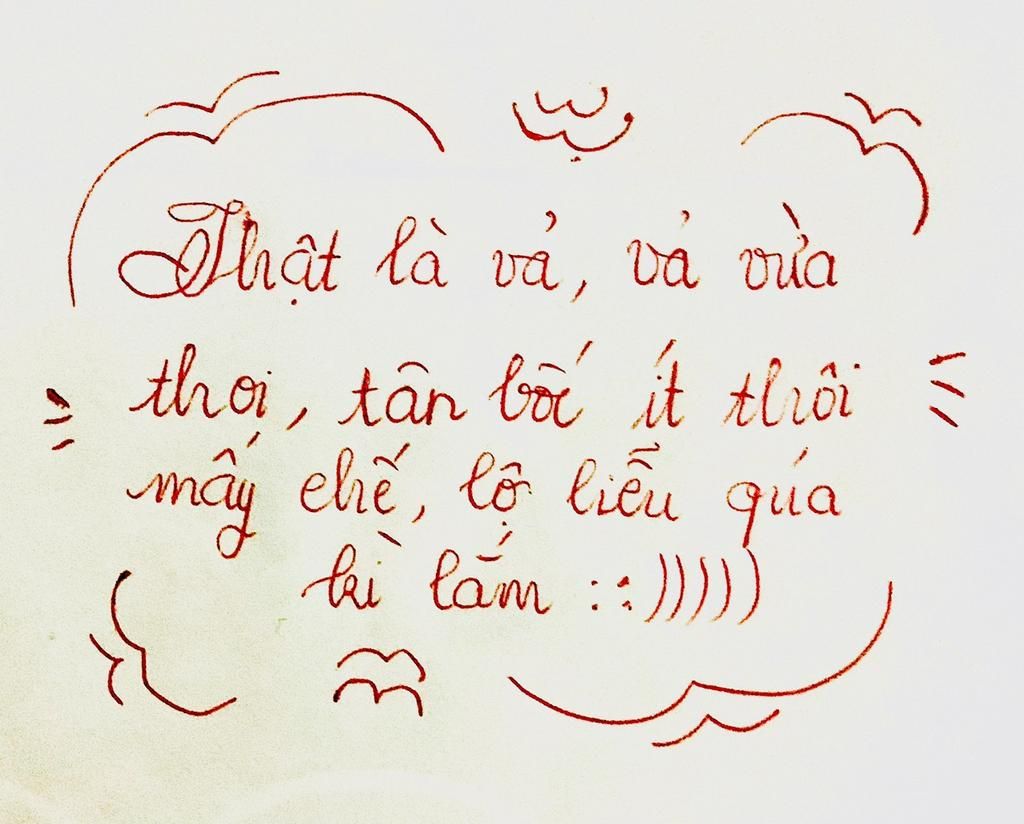 Thật là vả, vả vừa
thoi, tân bốc ít thôi
mấy chế, lộ liễu qúa
kì lắm ::)))))